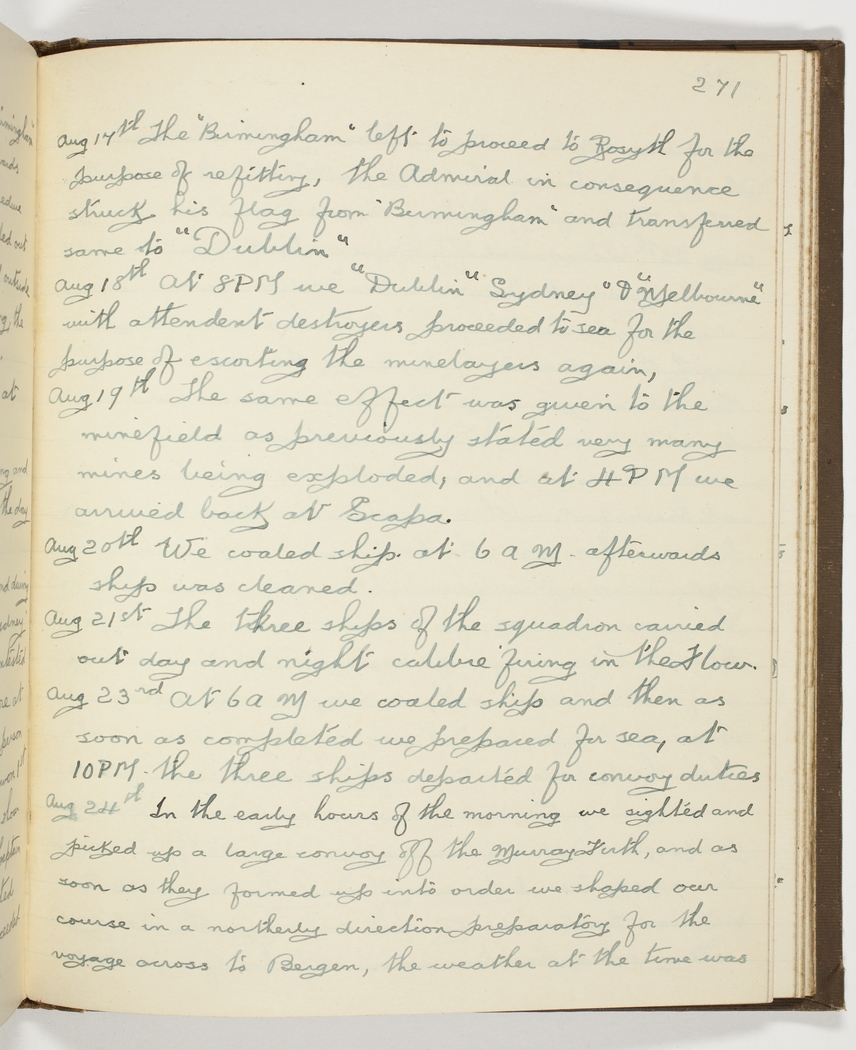 271
Aug 17th The "Birmingham" left to proceed to Rosyth for the
purpose of refitting, the Admiral in consequence
struck his flag from "Birmingham" and transferred
same to "Dublin"
Aug 18th At 8PM we "Dublin" Sydney" & "Melbourne"
with attendent destroyers proceeded to sea for the
purpose of escorting the minelayers again,
Aug 19th The same effect was given to the
minefield as previously stated very many
mines being exploded, and at 4PM we
arrived back at Scapa.
Aug 20th We coaled ship at 6 a M. afterwards
ship was cleaned.
Aug 21st The three ships of the squadron carried
out day and night calibre firing in the Flow.
Aug 23rd At 6 a M we coaled ship and then as
soon as completed we prepared for sea, at
10PM. the three ships departed for convoy duties
Aug 24th In the early hours of the morning we sighted and
picked up a large convoy off the Murray Firth, and as
soon as they formed up into order we shaped our
course in a northerly direction preparatory for the
voyage across to Bergen, the weather at the time was